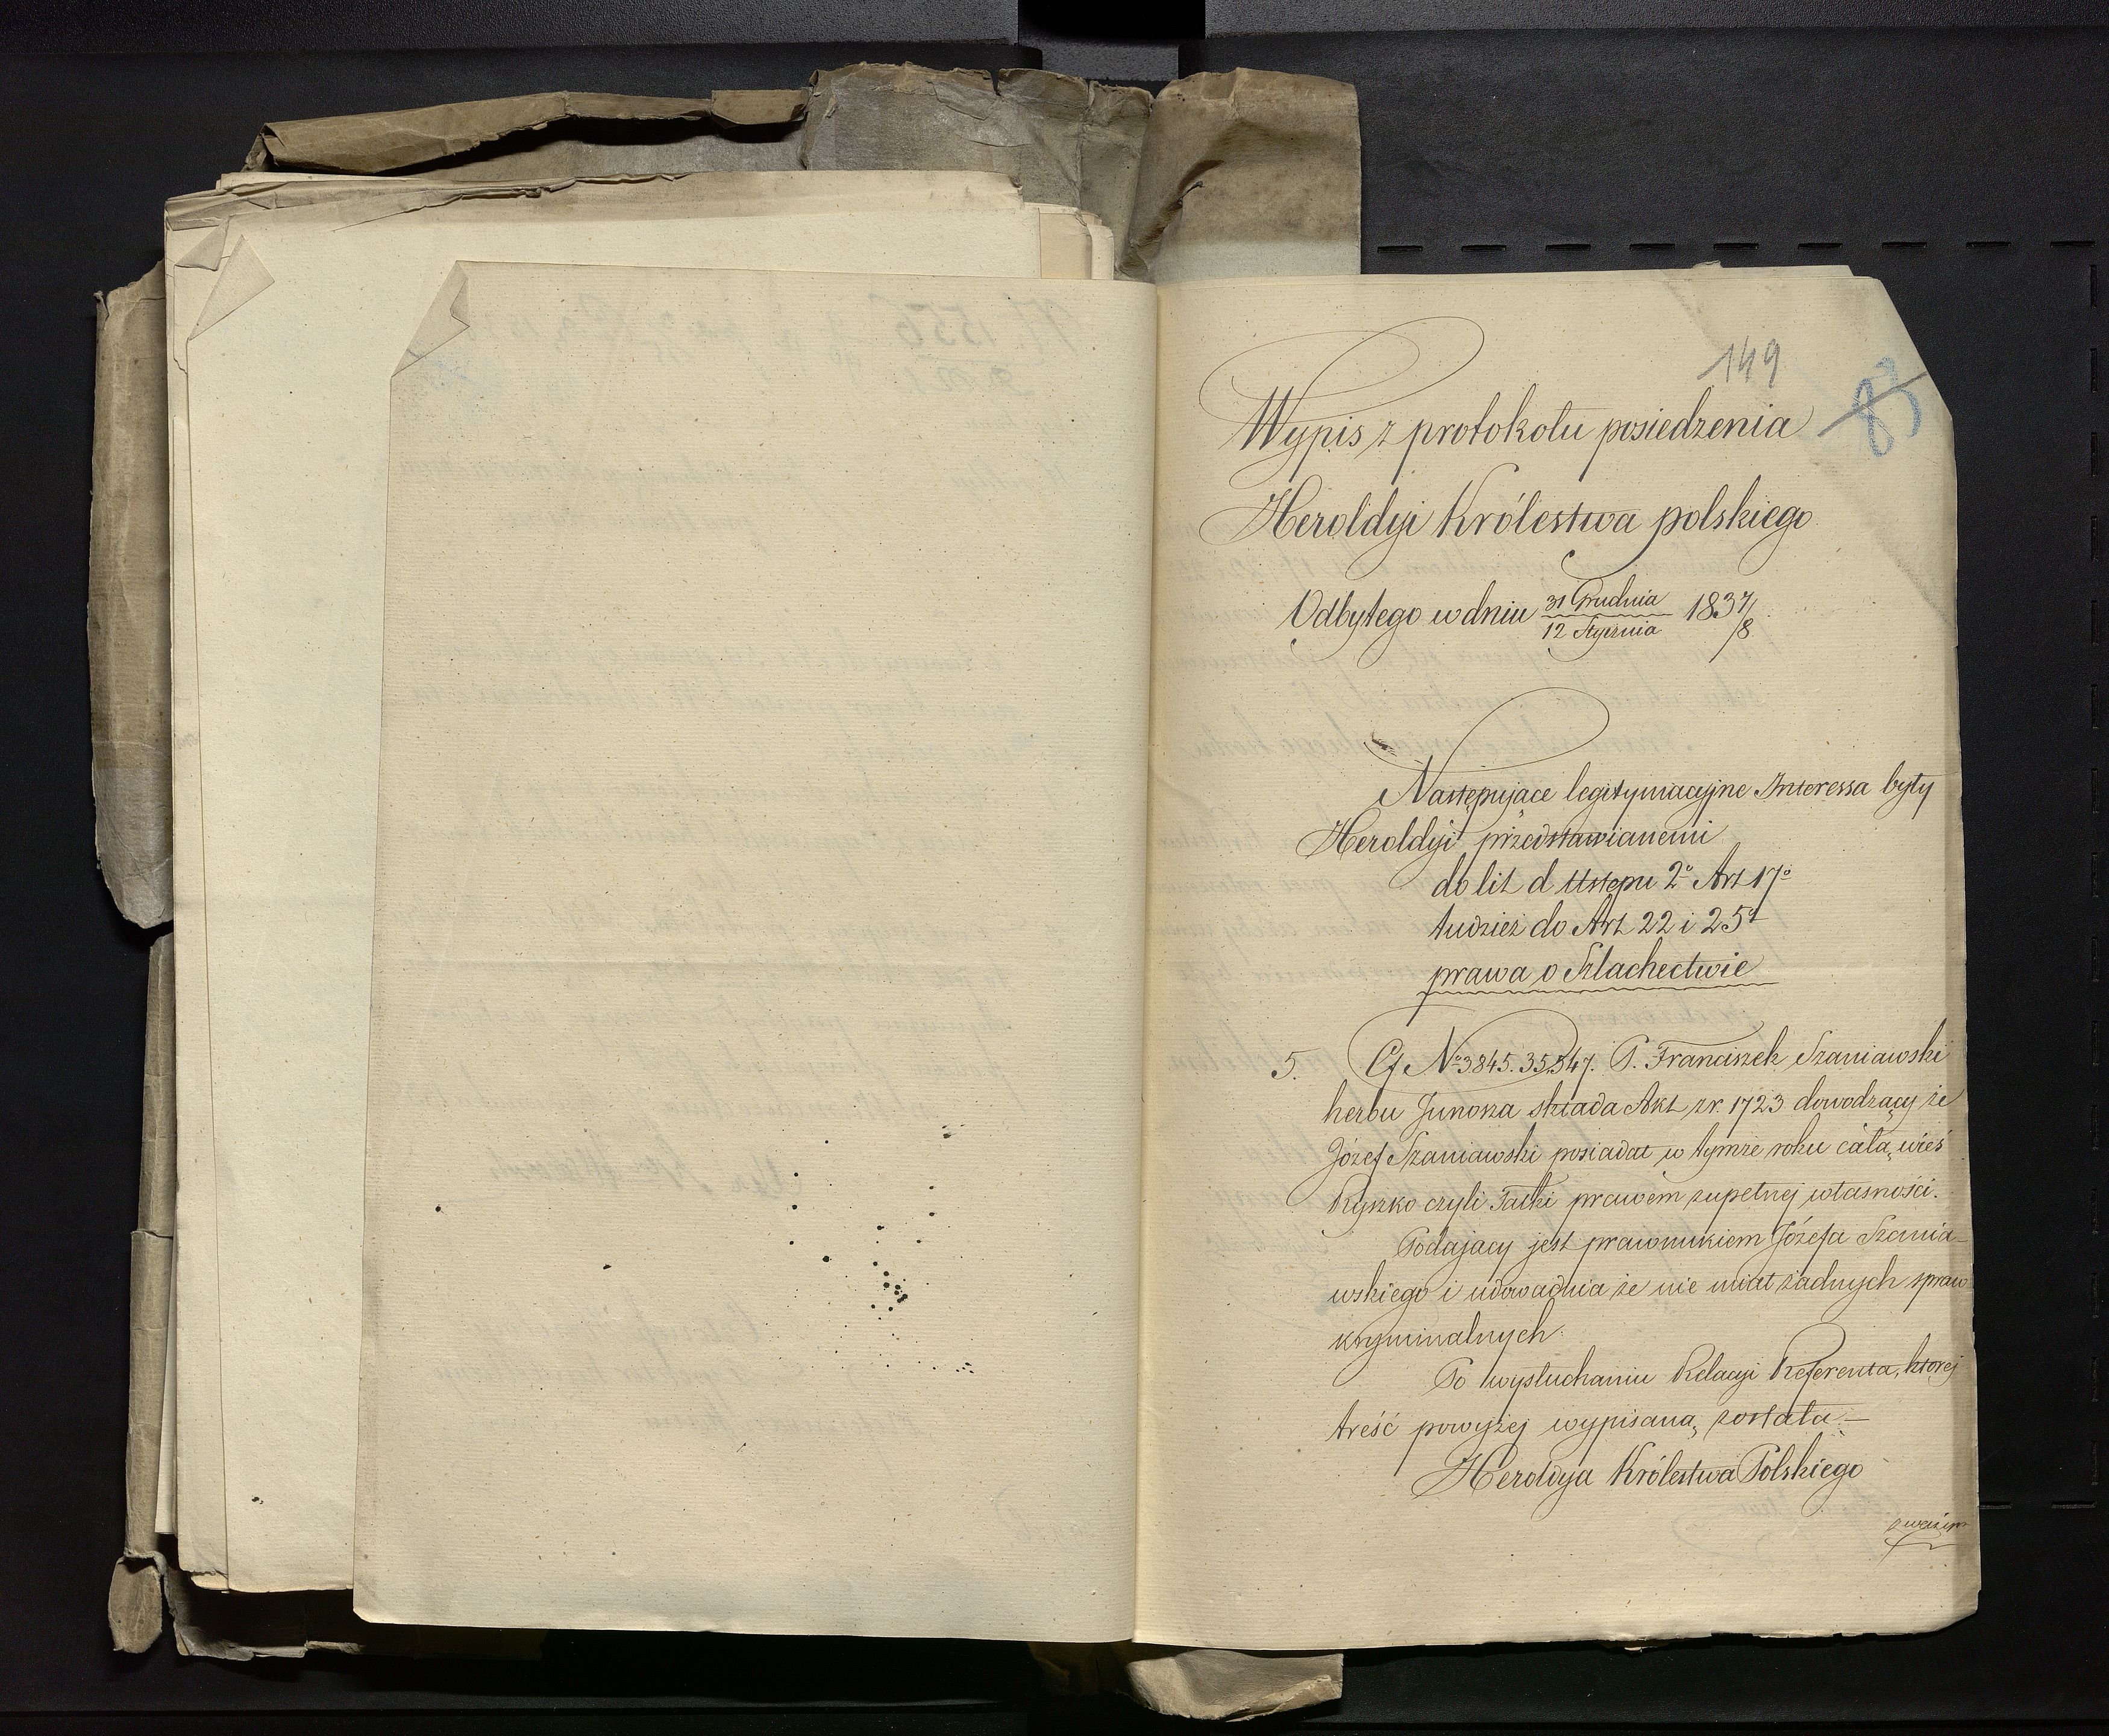 149
83
Wypis z protokołu posiedzenia
Heroldyi Królestwa polskiego
Odbytego w dniu 31 Grudnia / 12 Stycznia 1837/8
Następujące legitymacyjne Interessa były
Heroldyi przedstawianemi
do lit d Ustępu 2º Art 17º
tudzież do Art 22 i 25º
prawa o Szlachectwie
5. Cf Nº 3845. 35,547. P. Franciszek Szaniawski
herbu Junosza składa Akt z r. 1723 dowodzący że
Józef Szaniawski posiadał w tymże roku całą wieś
Kyszko czyli Jatki prawem zupełnej własności.
Podający jest prawnukiem Józefa Szania-
wskiego i udowadnia że nie miał żadnych spraw
kryminalnych.
Po wysłuchaniu Relacyi Referenta, której
treść powyżej wypisaną została –
Heroldya Królestwa Polskiego
zważyw